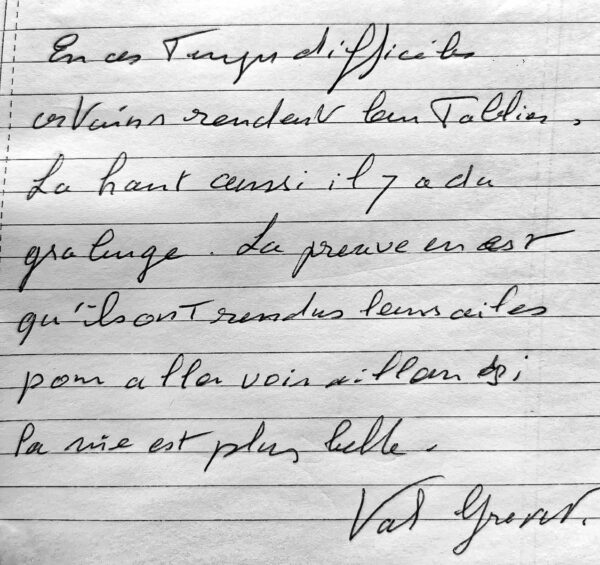 En ces Temps difficiles
certains rendent leur Tablier.
La haut aussi il y a du
grabuge. La preuve en est
qu'ils ont rendus leurs ailes
pour aller voir ailleurs si
la vie est plus belle.
Val